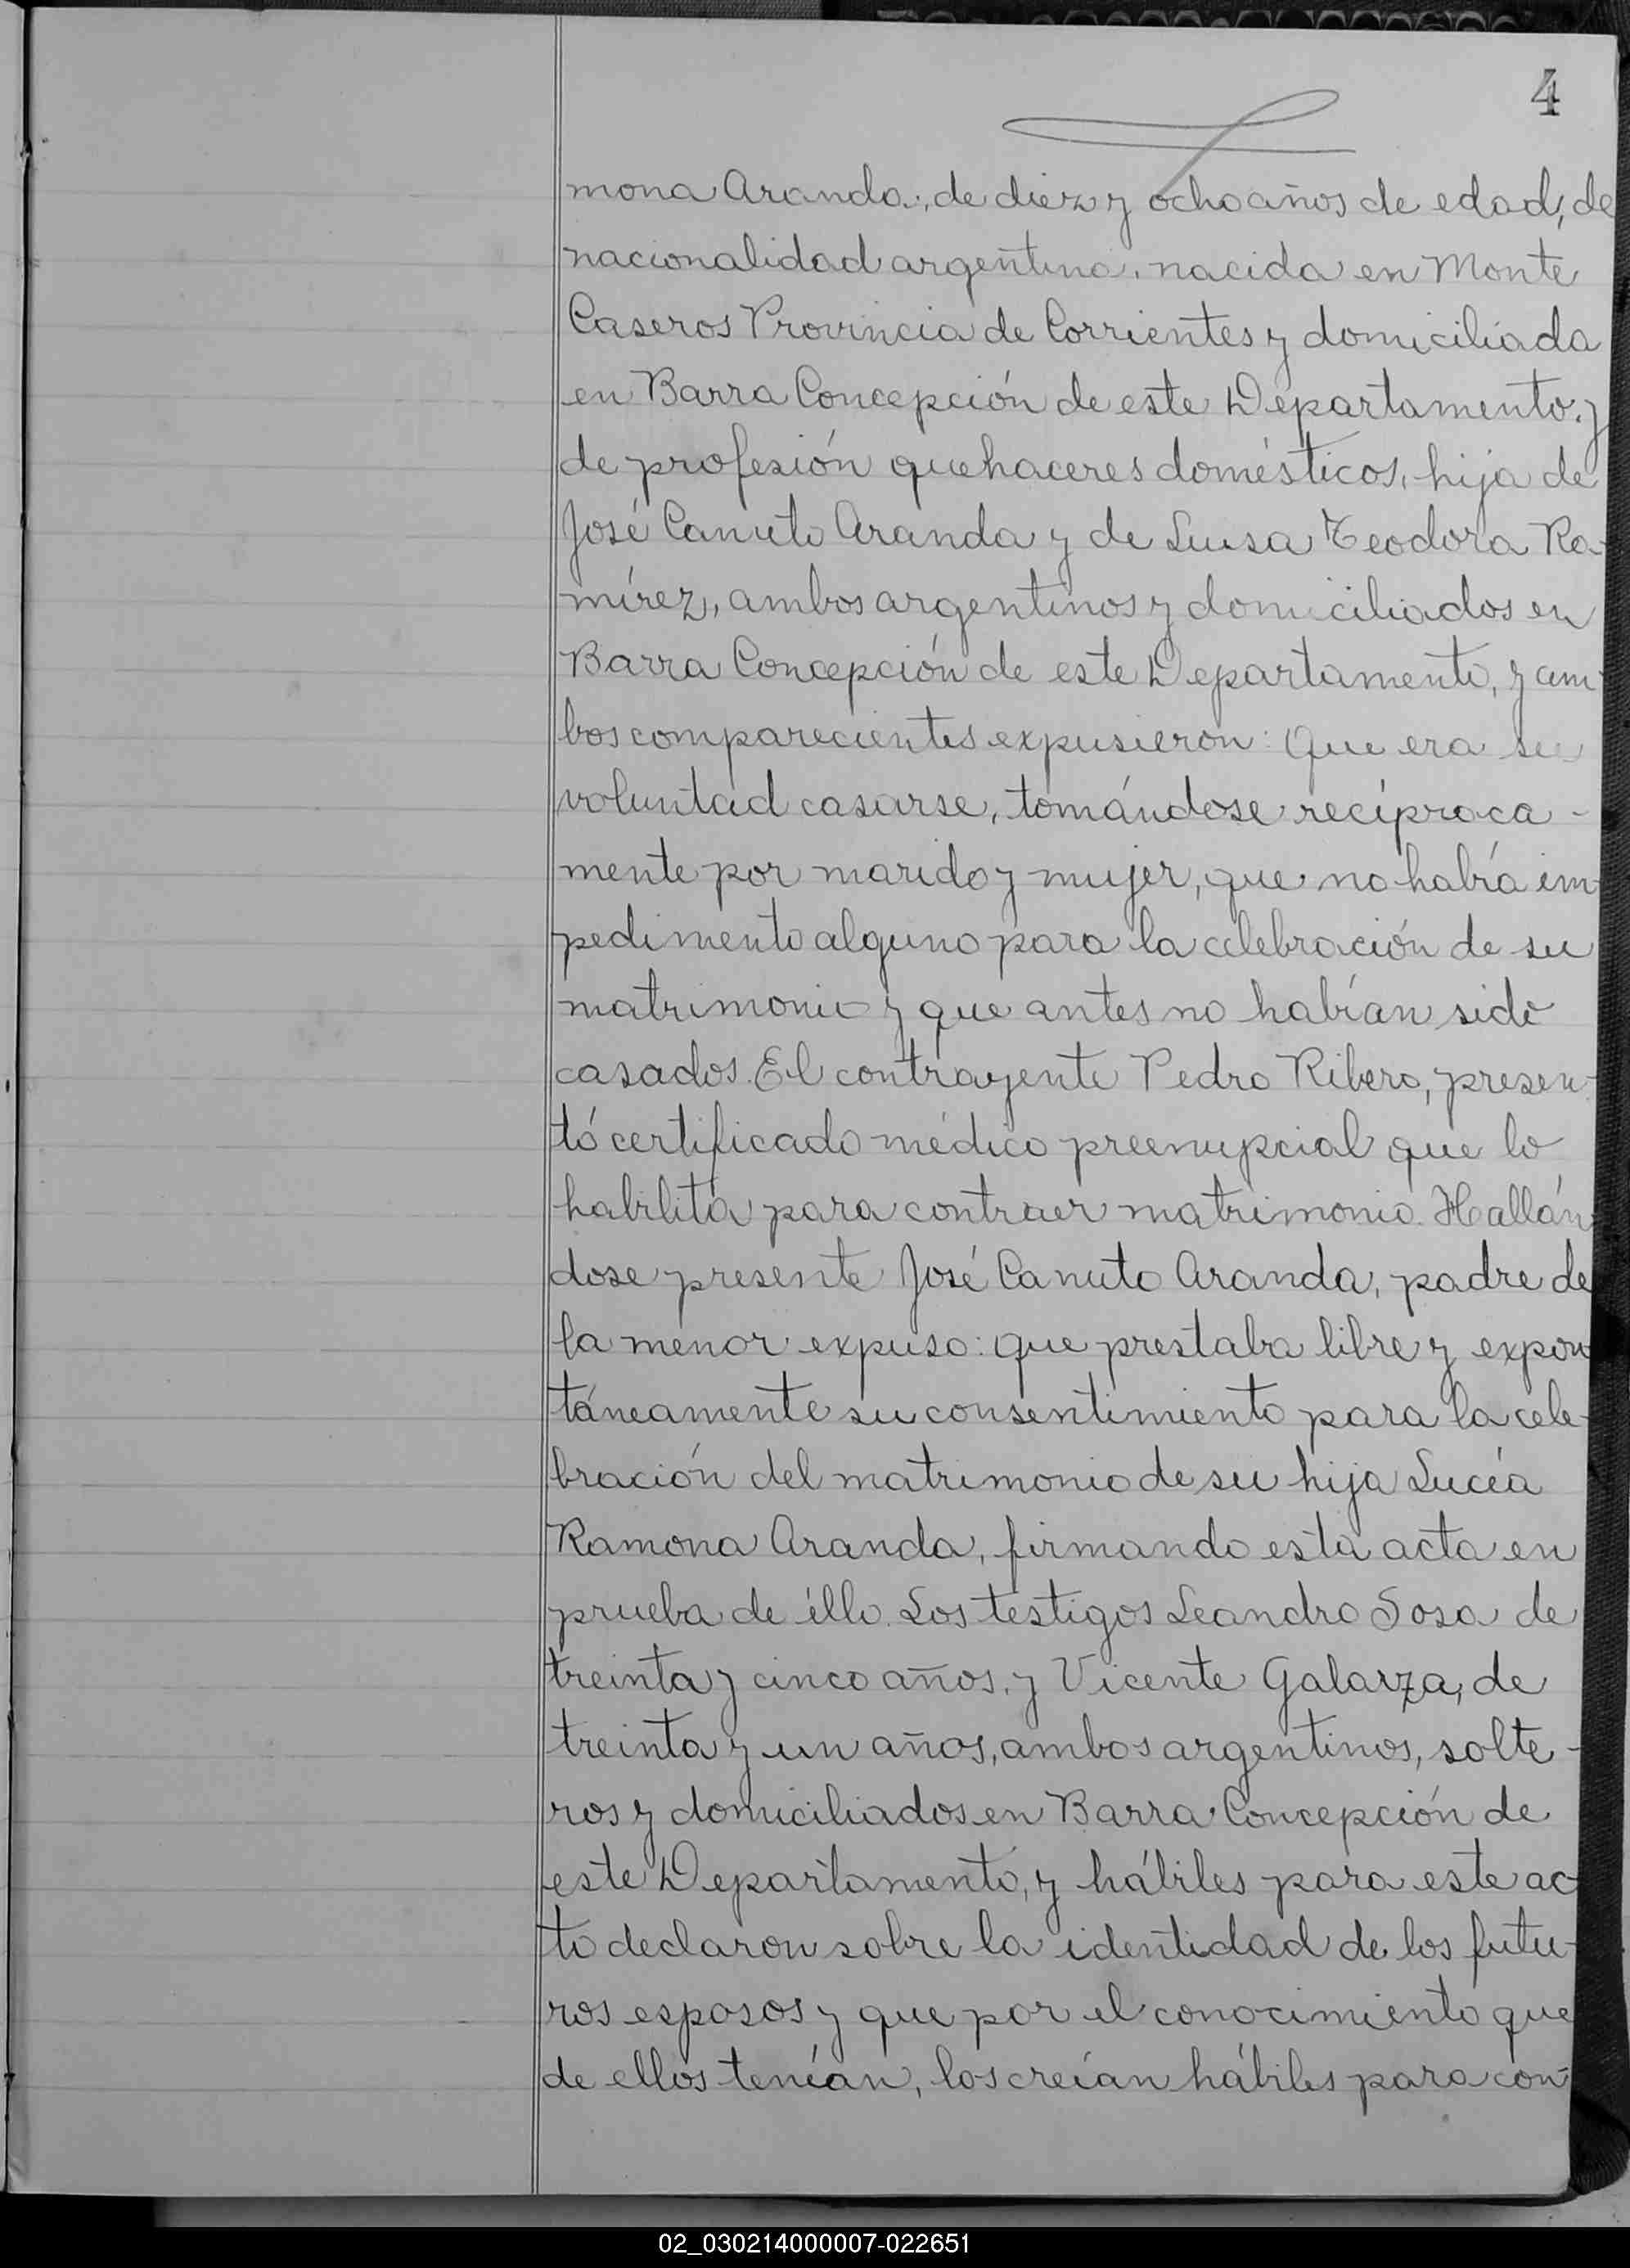 4
mona Aranda, de diez y ocho años de edad, de
nacionalidad argentina, nacida en Monte
Caseros Provincia de Corrientes y domiciliada
en Barra Concepción de este Departamento, y
de profesión quehaceres domésticos, hija de
José Canuto Aranda y de Luisa Teodora Ra-
mírez, ambos argentinos y domiciliados en
Barra Concepción de este Departamento, y am-
bos comparecientes expusieron: Que era su
voluntad casarse, tomándose recíproca-
mente por marido y mujer, que no había im-
pedimento alguno para la celebración de su
matrimonio y que antes no habían sido
casados. El contrayente Pedro Ribero, presen-
tó certificado médico preenupcial que lo
habilita para contraer matrimonio. Hallán-
dose presente José Canuto Aranda, padre de
la menor expuso: que prestaba libre y expon
táneamente su consentimiento para la cele-
bración del matrimonio de su hija Lucía
Ramona Aranda, firmando esta acta en
prueba de éllo. Los testigos Leandro Sosa de
treinta y cinco años, y Vicente Galarza, de
treinta y un años, ambos argentinos, solte-
ros y domiciliados en Barra Concepción de
este Departamento, y hábiles para este ac-
to declaron sobre la identidad de los futu-
ros esposos y que por el conocimiento que
de ellos tenían, los creían hábiles para con-
02_030214000007-022651